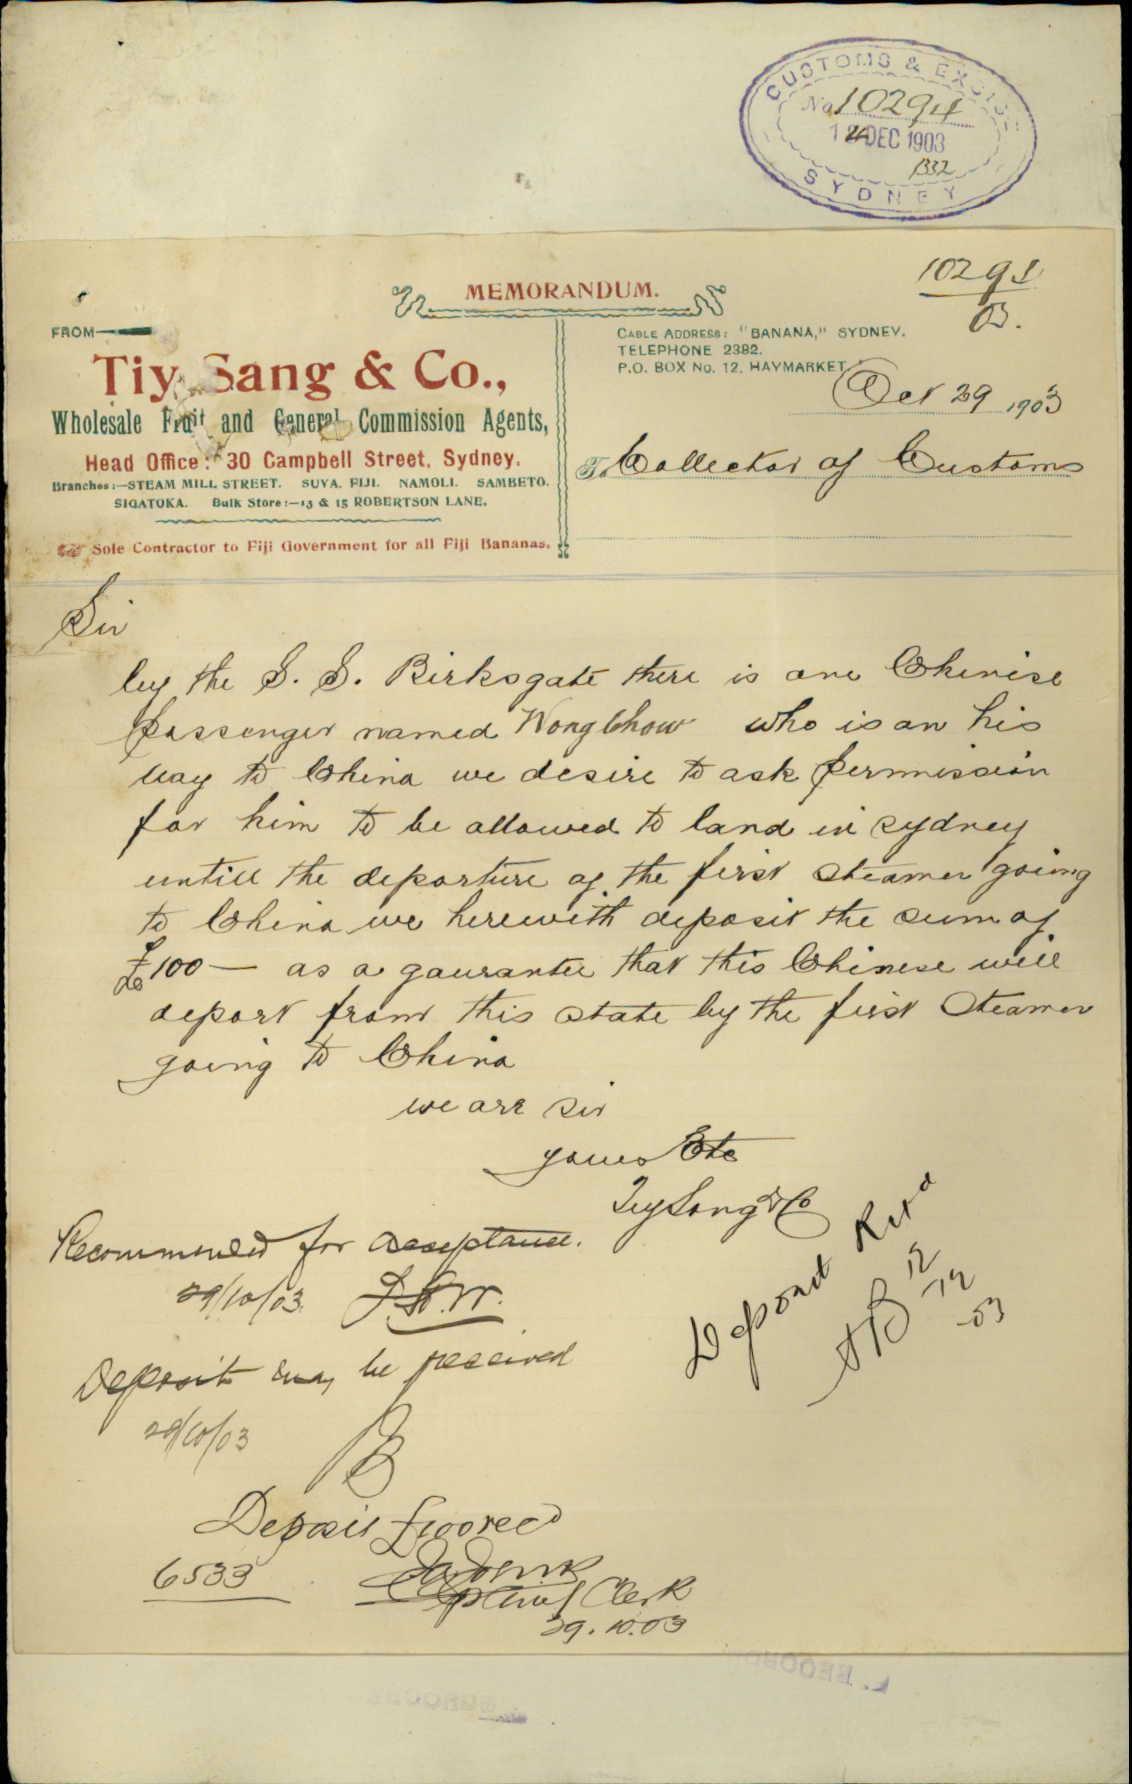 CUSTOMS & EXCISE
No 10294
DEC 1903
1332
SYDNEY
MEMORANDUM.
FROM
Tiy Sang & Co.,
Wholesale Fruit and General Commission Agents,
Head Office: 30 Campbell Street, Sydney.
Branches:—STEAM MILL STREET. SUVA, FIJI. NAMOLI. SAMBETO.
SIGATOKA. Bulk Store:—13 & 15 ROBERTSON LANE.
Sole Contractor to Fiji Government for all Fiji Bananas.
03.
CABLE ADDRESS: "BANANA," SYDNEY.
TELEPHONE 2382.
P.O. BOX No. 12, HAYMARKET.
Oct 29 1903
To Collector of Customs
Sir
by the S. S. Birksgate there is one Chinise
passenger named Wong Chow who is on his
way to China we desire to ask permission
for him to be allowed to land in Sydney
untill the deporture of the first steamer going
to China we herewith deposit the sum of
£100— as a gaurantee that this Chinese will
deport from this state by the first steamer
going to China
we are sir
yours Etc
Tiy Sang & Co
Recommended for acceptance.
29/10/03.
Deposit may be received
29/10/03
Deposit Retd
12
12
03
Deposit £100 recd
6533
Clerk
29.10.03